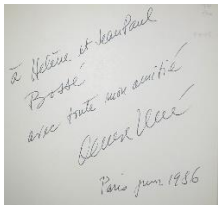 à Helène et Jean Paul
Bossé
avec toute mon amitié
Paris juin 1986